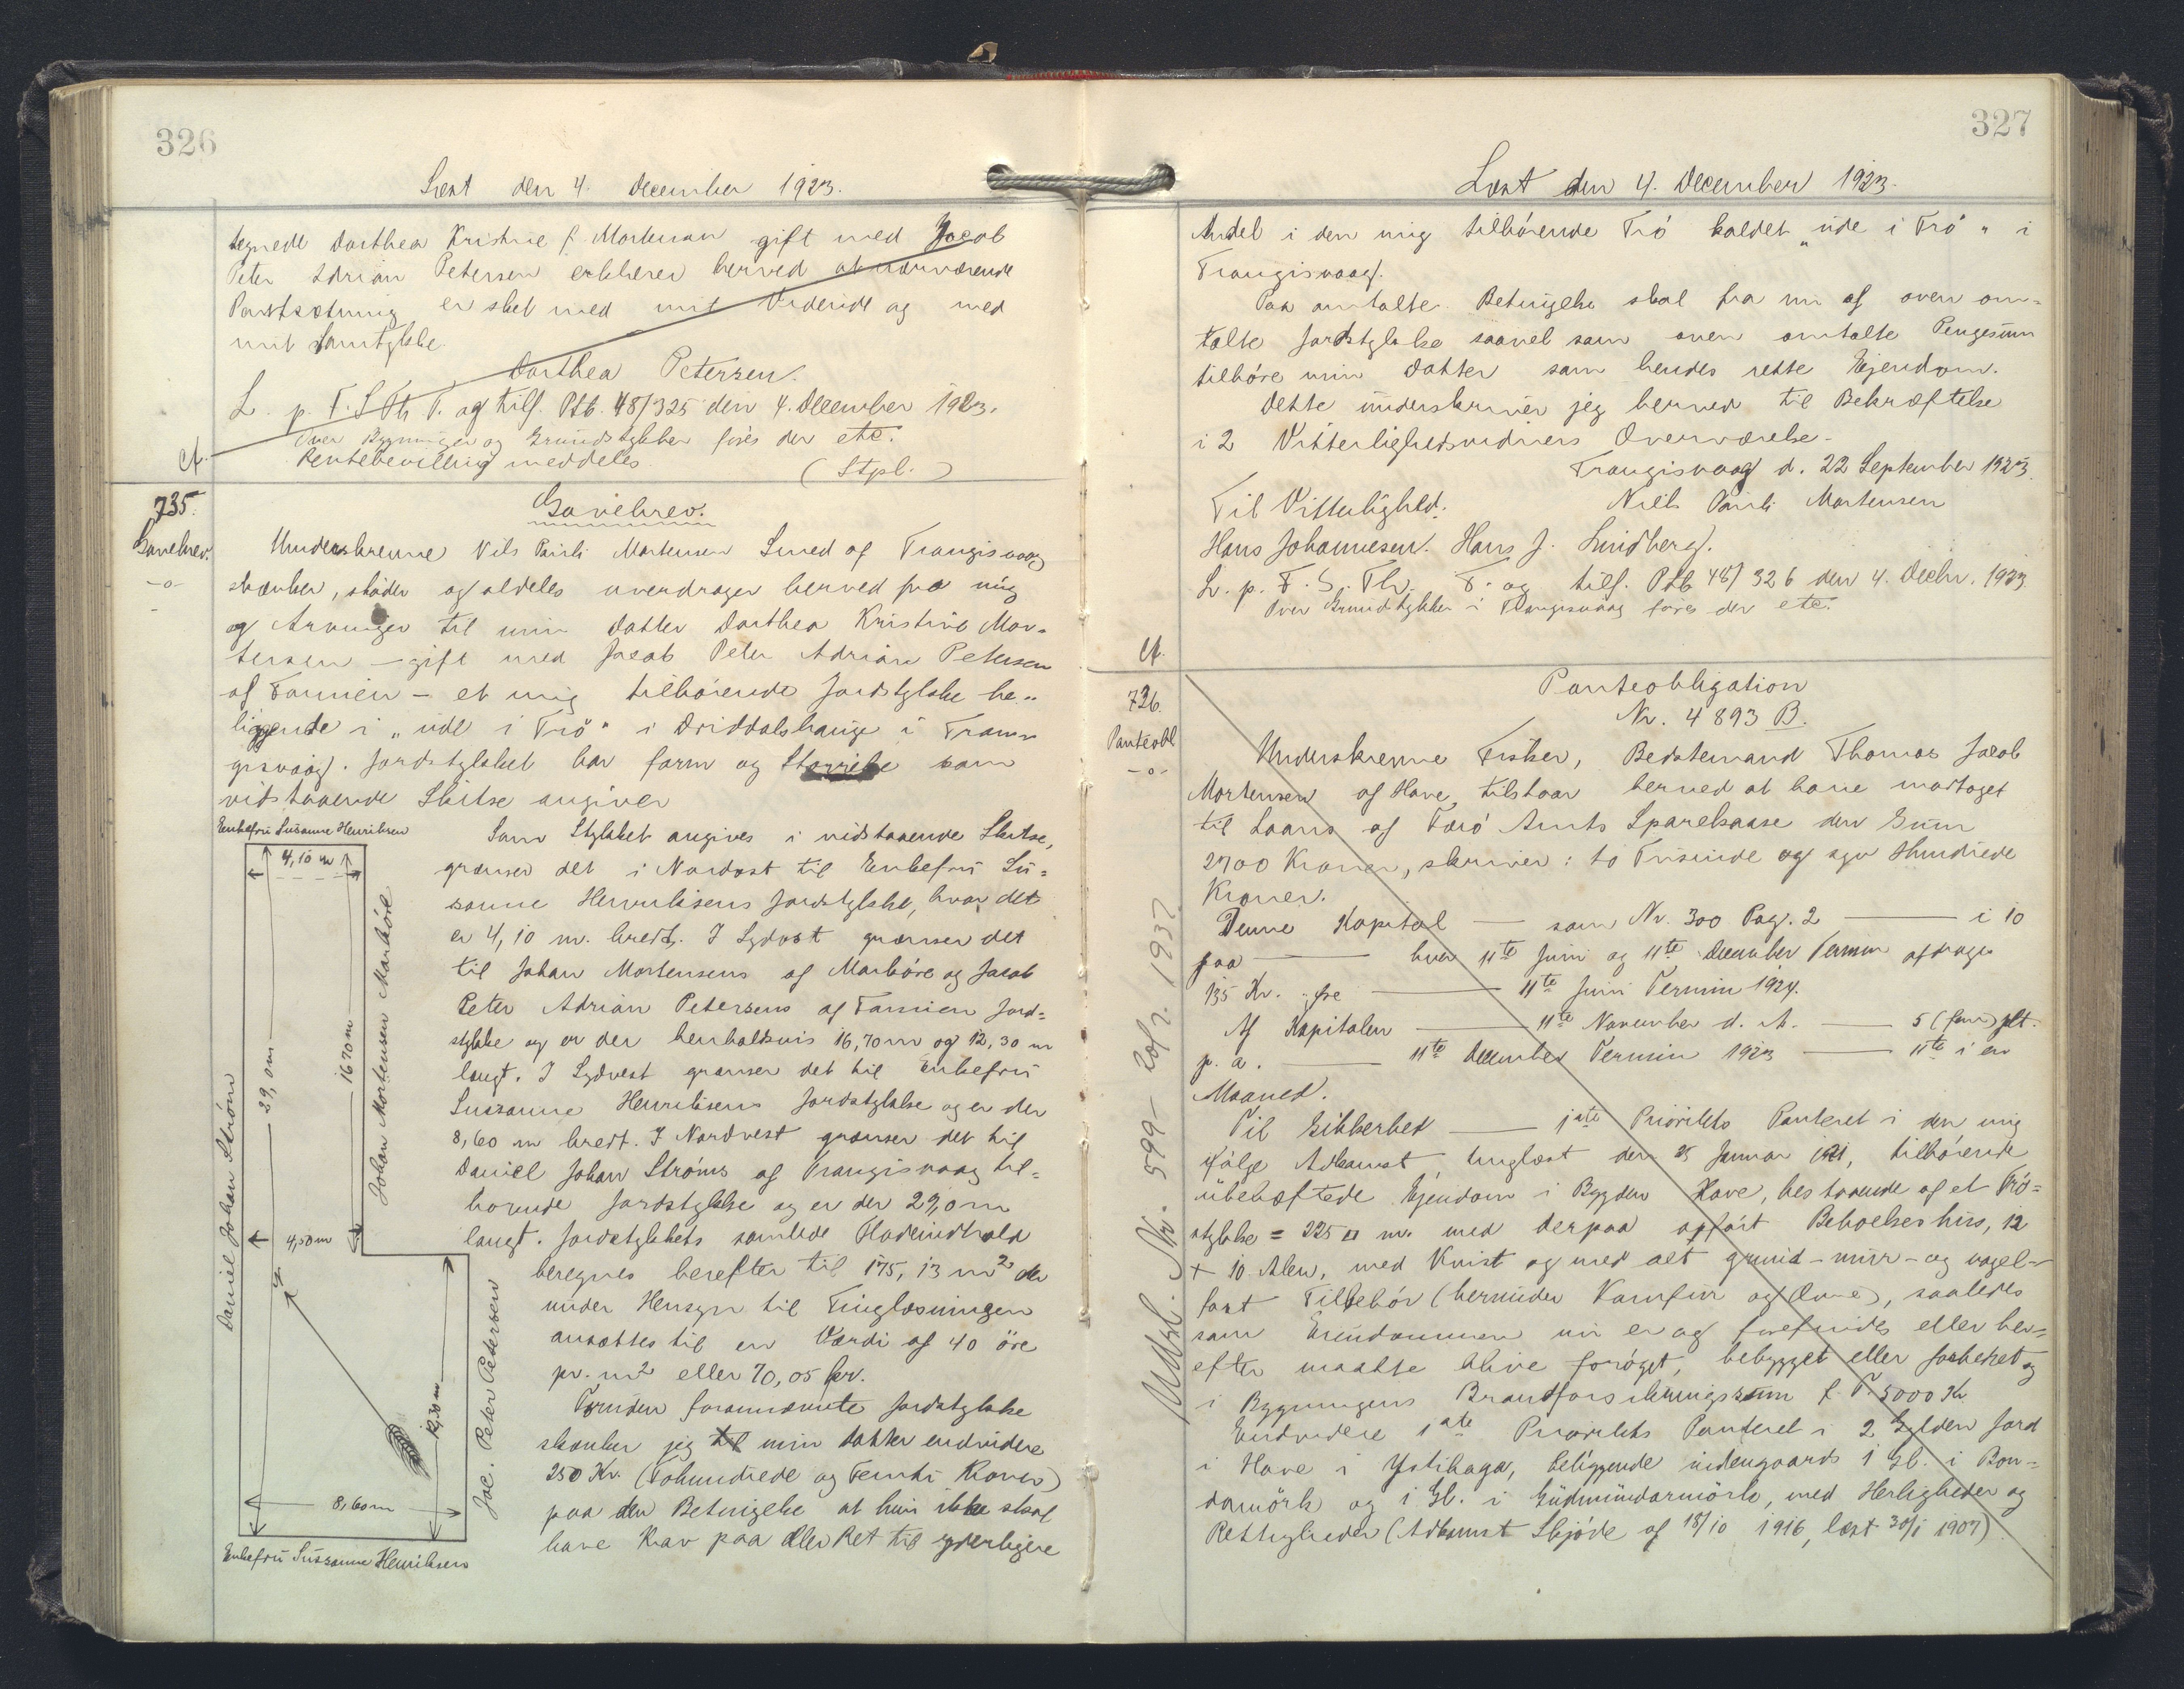 326
Læst den 4. December 1923.
tegnede Dorthea Kristine f. Mortensen gift med Jacob
Peter Adrian Petersen erklærer herved at nærværende
Pantsætning er sket med mit Vidende og med
mit Samtykke.
Dorthea Petersen.
L. p. F. S. Th. T. og tilf. Ptb. 48/325 den 4. December 1923.
Over Bygninger og Grundstykker føres der etc.
Rentebevilling meddeles. (Stpl.)
735.
Gavebrev.
-o-
Gavebrev.
Underskrevne Nils Pauli Mortensen Smed af Trangisvaag
skænker, skøder og aldeles overdrager herved fra mig
og Arvinger til min Datter Dorthea Kristine Mor=
tensen – gift med Jacob Peter Adrian Petersen
af Famien – et mig tilhørende Jordstykke be=
liggende i „ude i Trö" i Driddalshauge i Tran=
gisvaag. Jordstykket har form og Störrelse som
vidstaaende Skitse angiver
Enkefru Susanne Henriksen
4,10 m
29,0 m
16,70 m
Johan Mortensen Marköre
Daniel Johan Ström
4,50 m
12,30 m
Jac. Peter Petersen
8,60 m
Enkefru Sussanne Henriksens
Som Stykket angives i vidstaaende Skitse,
grænser det i Nordost til Enkefru Su=
sanne Henriksens Jordstykke, hvor det
er 4,10 m. bredt. I Sydost grænser det
til Johan Mortensens af Marköre og Jacob
Peter Adrian Petersens af Famien Jord=
stykke og er der henholdsvis 16,70 m og 12,30 m
langt. I Sydvest grænser det til Enkefru
Sussanne Henriksens Jordstykke og er der
8,60 m bredt. I Nordvest grænser det til
Daniel Johan Ströms af Trangisvaag til=
hørende Jordstykke og er der 29,0 m
langt. Jordstykkets samlede Fladeindhold
beregnes herefter til 175,13 m² der
under Hensyn til Tinglæsningen
ansættes til en Værdi af 40 öre
pr. m² eller 70,05 kr.
Foruden forannævnte Jordstykke
skænker jeg til min Datter endvidere
250 Kr. (Tohundrede og Femti Kroner)
paa den Betingelse at hun ikke skal
have Krav paa eller Ret til yderligere
327
Læst den 4. December 1923.
Andel i den mig tilhørende Trö kaldet „ude i Trö" i
Trangisvaag.
Paa omtalte Betingelse skal fra nu af oven om=
talte Jordstykke saavel som oven omtalte Pengesum
tilhöre min Datter som hendes rette Ejendom.
Dette underskriver jeg herved til Bekræftelse
i 2 Vitterlighedsvidners Overværelse.
Trangisvaag d. 22 September 1923.
Til Vitterlighed. Niels Pauli Mortensen
Hans Johannesen. Hans J. Lindberg.
L. p. F. S. Th. T. og tilf. Ptb 48/326 den 4. Decbr. 1923
Over Grundstykker i Trangisvaag föres der etc.
736.
Panteobl
-o-
Panteobligation
Nr. 4893 B.
Underskrevne Fisker, Bedstemand Thomas Jacob
Mortensen af Hove, tilstaar herved at have modtaget
til Laans af Færö Amts Sparekasse den Sum
2700 Kroner, skriver: to Tusinde og syv Hundrede
Kroner.
Denne Kapital — som Nr. 300 Pag. 2 — i 10
paa — hver 11te Juni og 11te December Termin afdrages
135 Kr. — 11te Juni Termin 1924.
Af Kapitalen — 11te November d. A. — 5 (fem) pct.
p. a. — 11te December Termin 1923 — 11te i en
Maaned.
Til Sikkerhed — 1ste Prioritets Panteret i den mig
ifölge Adkomst, tinglæst den 25 Januar 1921, tilhørende
ubehæftede Ejendom i Bygden Hove, bestaaende af et Trö=
stykke = 225 □ m. med derpaa opfört Beboelseshus, 12
+ 10 Alen, med Kvist og med alt grund- mur- og nagel-
fast Tilbehör (herunder Komfur og Ovne), saaledes
som Ejendommen nu er og forefindes eller her=
efter maatte blive foröget, bebygget eller forbedret og
i Bygningens Brandforsikringssum f. T. 5000 Kr
Endvidere 1ste Prioritets Panteret i 2 Gylden Jord
i Hove i Ystihaga, beliggende udengaards 1 Gl. i Bon=
damörk og 1 Gl. i Gudmundarmörk, med Herligheder og
Rettigheder (Adkomst Skjöde af 18/10 1916, læst 30/1 1907)
Udsl. Nr. 599 - 20/7. 1937